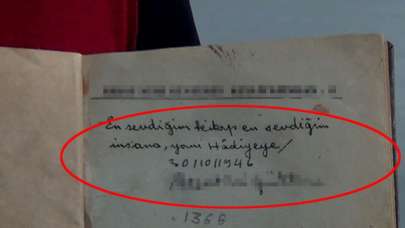 En sevdiğim kitap en sevdiğim
insana, yani Hâdiyeye/
3011011946
1366